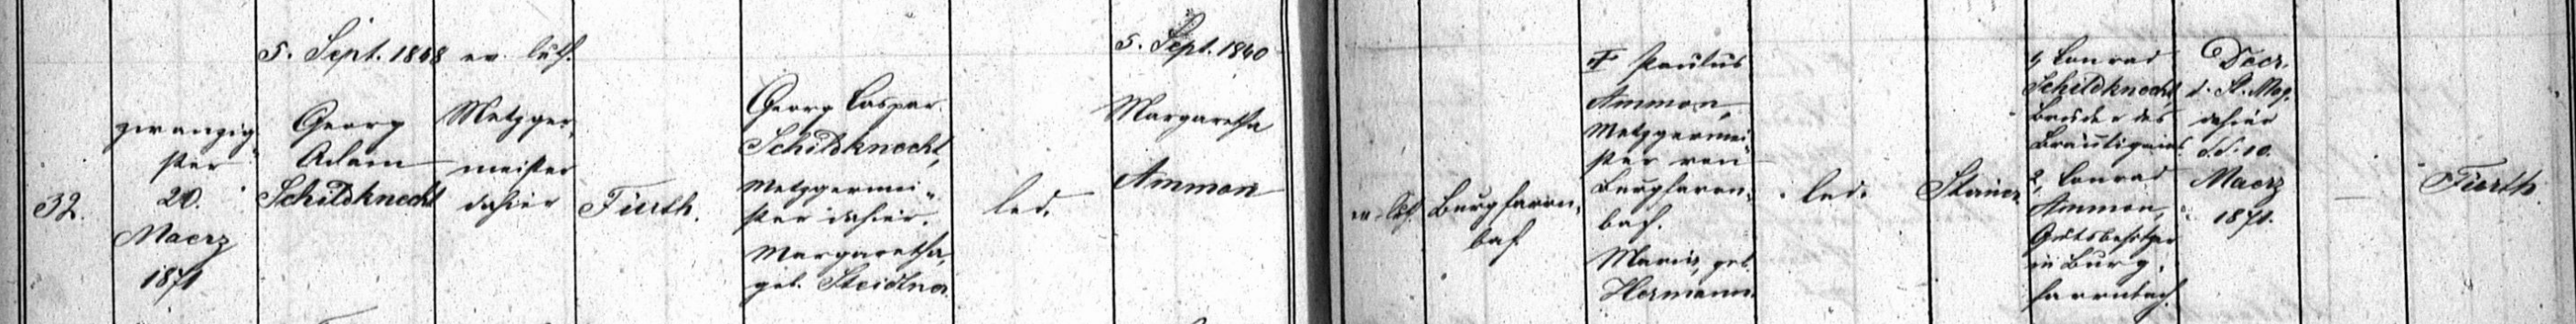 32.
zwanzig-
ster
20.
Maerz
1871
5. Sept. 1848
Georg
Adam
Schildknecht
ev. luth.
Metzger-
meister
dahier
Fürth.
Georg Caspar
Schildknecht,
Metzgermei-
ster dahier.
Margaretha,
geb.
led.
5. Sept. 1840
Margaretha
Ammon
Burgfarrn-
bach
Paulus
Ammon,
Metzgermei-
ster von
Burgfarrn-
bach.
Maria, geb.
Hermann
led.
1, Conrad
Schildknecht,
Bruder des
Bräutigams
2, Conrad
Ammon,
Gutsbesitzer
in Burg-
farrnbach.
Decr.
d. St. Mag.
dahier
d.d. 10.
Maerz
1871.
Fürth